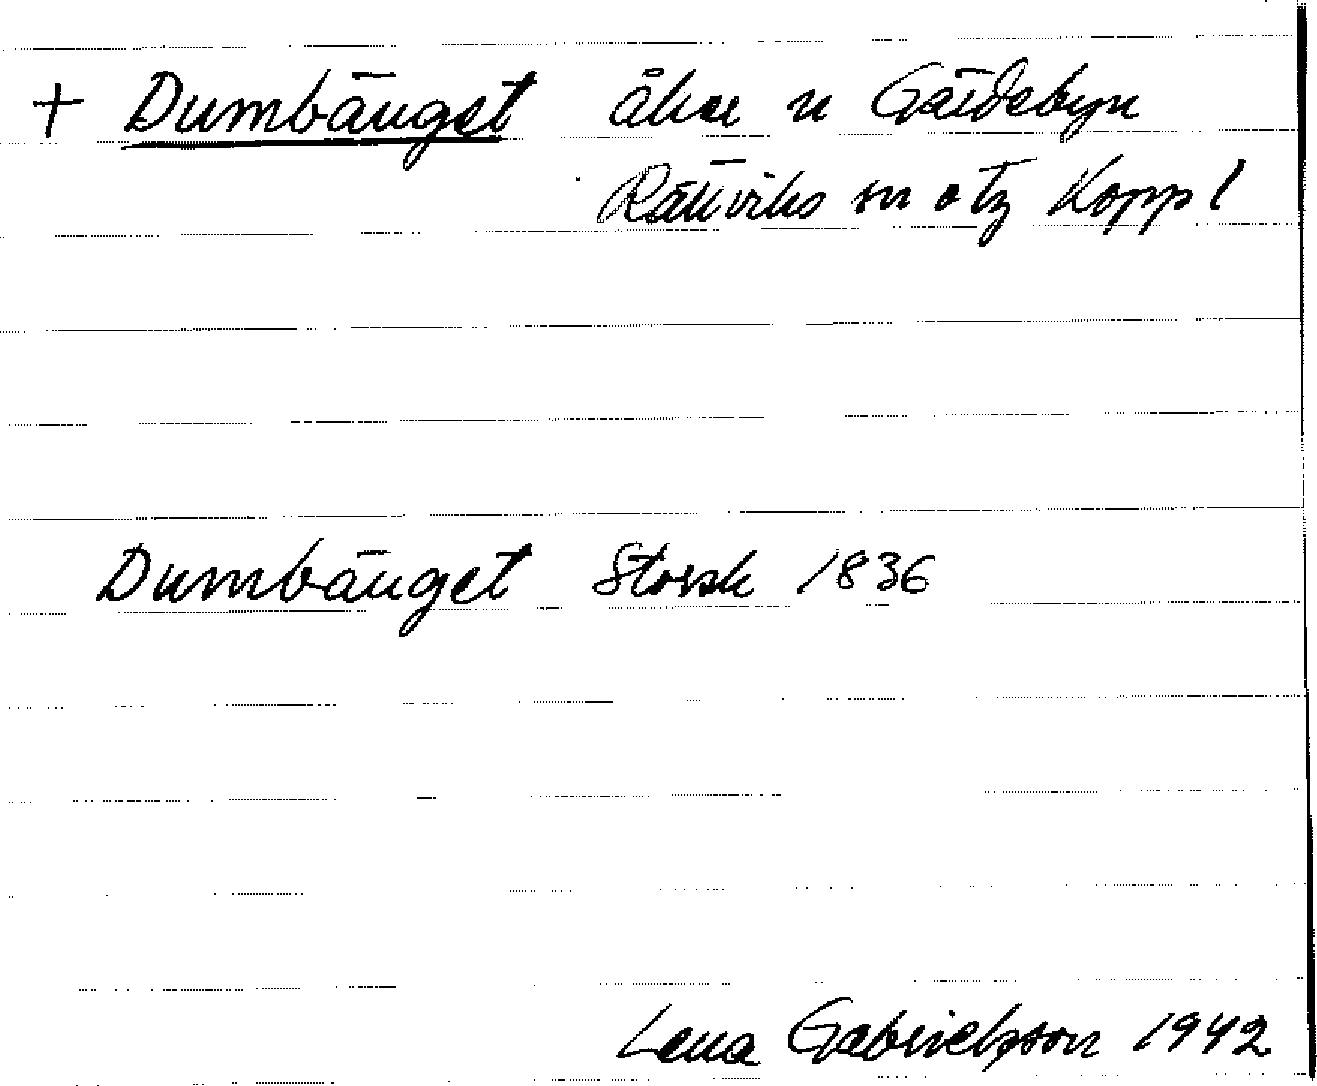 + Dumbänget åker n Gärdebyn
Rättviks sn o tg Kopp l
Dumbänget Storsk 1836
Lena Gabrielsson 1942